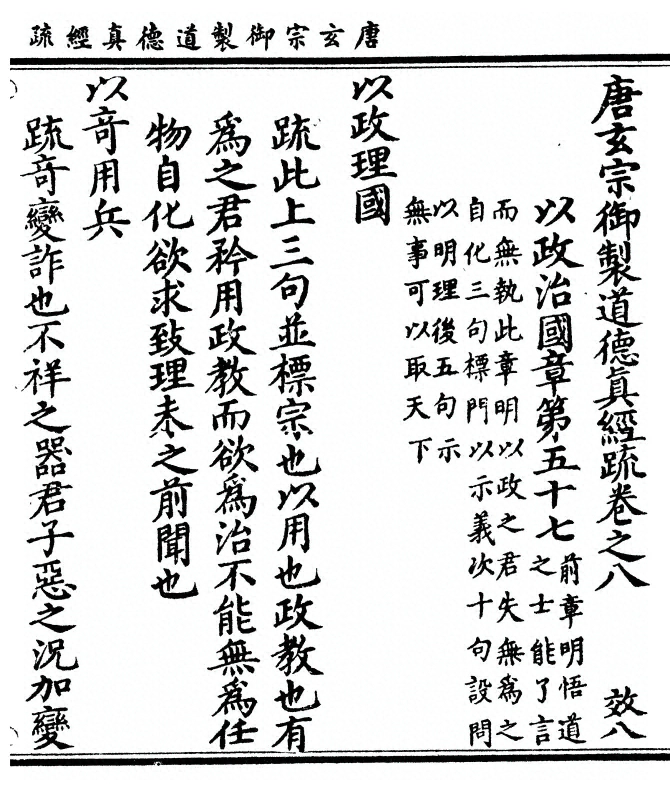 唐玄宗御製道德真經疏
唐玄宗御製道德真經疏卷之八 效八
以政治國章第五十七
前章明悟道
之士能了言
而無執此章明以政之君失無爲之
自化三句標門以示義次十句設問
以明理後五句示
無事可以取天下
以政理國
疏此上三句並標宗也以用也政教也有
爲之君矜用政教而欲爲治不能無爲任
物自化欲求致理未之前聞也
以竒用兵
疏竒變詐也不祥之器君子惡之況加變